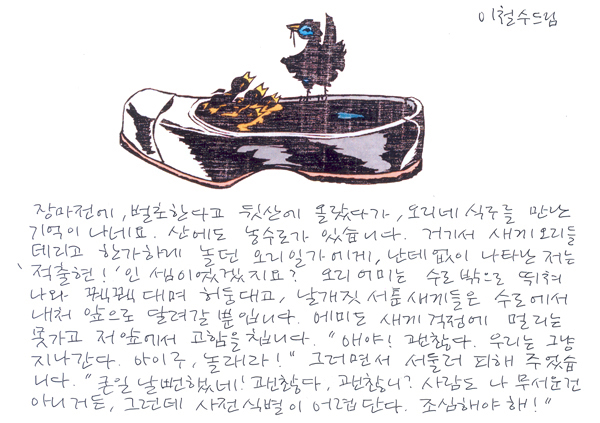 이철수드림
장마전에, 벌초한다고 뒷산에 올랐다가, 오리네 식구를 만난
기억이 나네요. 산에도 농수로가 있습니다. 거기서 새끼오리들
데리고 한가하게 놀던 오리일가에게, 난데없이 나타난 저는
'적출현!'인 셈이였겠지요? 오리어미는 수로밖으로 뛰쳐
나와 꽥꽥대며 허둥대고, 날개짓 서툰 새끼들은 수로에서
내처 앞으로 달려갈 뿐입니다. 에미도 새끼걱정에 멀리는
못가고 저앞에서 고함을 칩니다. "얘야! 괜찮다. 우리는 그냥
지나간다. 아이구, 놀래라!" 그러면서 서둘러 피해 주었습
니다. "큰일날뻔했네! 괜찮다, 괜찮니? 사람도 다 무서운건
아니거든, 그런데 사전식별이 어렵단다. 조심해야해!"